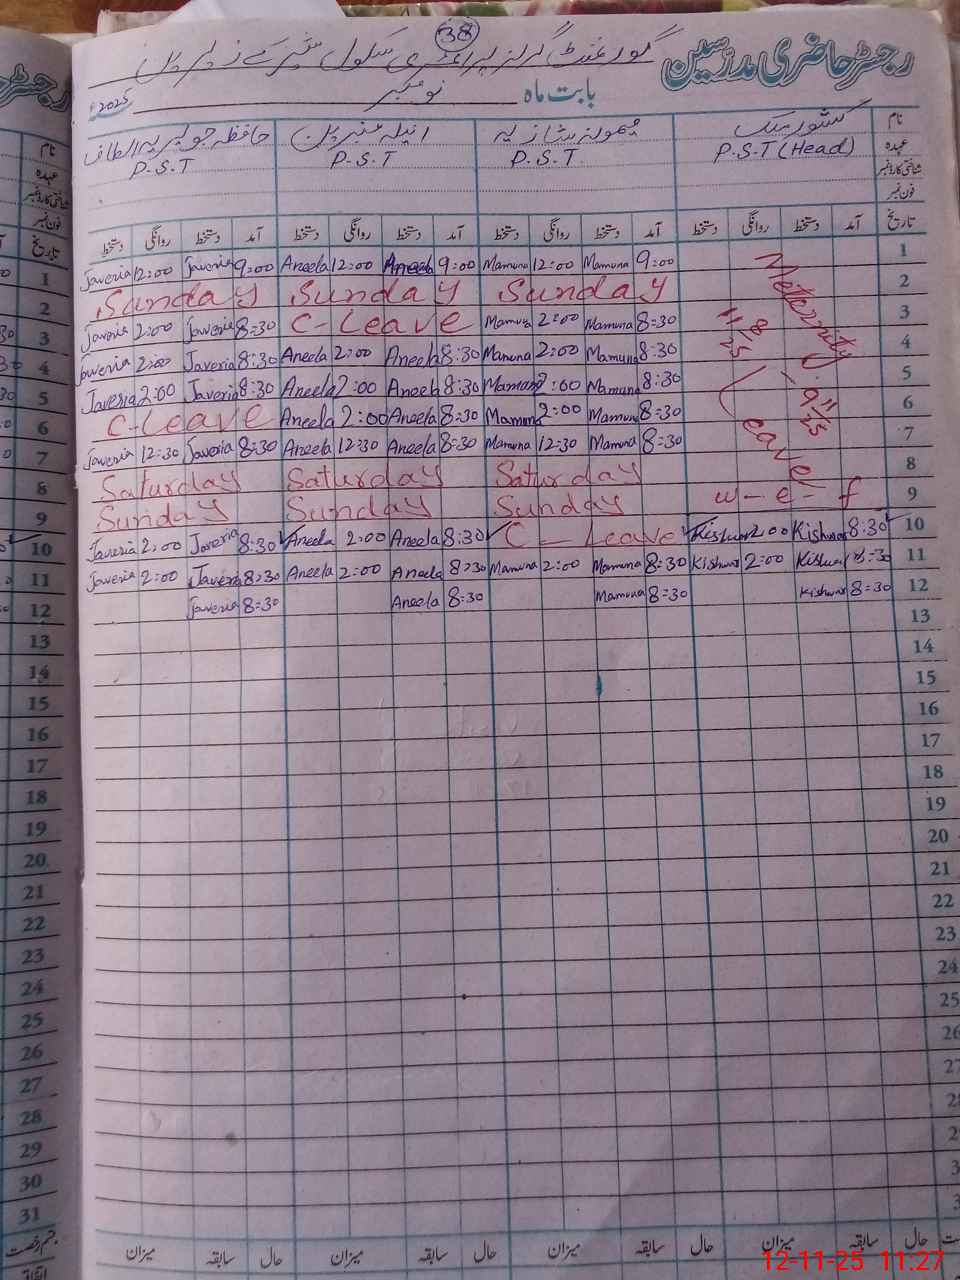 38
رجسٹر حاضری مدرسین گورنمنٹ گرلز پرائمری سکول
بابت ماہ نومبر 2025ء
نام کشور میمونہ شازیہ انیلہ حافظہ جویریہ الطاف
عہدہ P.S.T (Head) P.S.T P.S.T P.S.T
شناختی کارڈ نمبر
فون نمبر
تاریخ آمد دستخط روانگی دستخط آمد دستخط روانگی دستخط آمد دستخط روانگی دستخط آمد دستخط روانگی دستخط
Javeria 12:00 Javeria 9:00 Aneela 12:00 Aneela 9:00 Mamuna 12:00 Mamuna 9:00 1
Sunday Sunday Sunday 2
Javeria 2:00 Javeria 8:30 C-Leave Mamuna 2:00 Mamuna 8:30 3
Javeria 2:00 Javeria 8:30 Aneela 2:00 Aneela 8:30 Mamuna 2:00 Mamuna 8:30 4
Javeria 2:00 Javeria 8:30 Aneela 2:00 Aneela 8:30 Mamuna 2:00 Mamuna 8:30 5
C-Leave Aneela 2:00 Aneela 8:30 Mamuna 2:00 Mamuna 8:30 6
Javeria 12:30 Javeria 8:30 Aneela 12:30 Aneela 8:30 Mamuna 12:30 Mamuna 8:30 7
Saturday Saturday Saturday 8
Sunday Sunday Sunday w-e-f 9
Meternity Leave
11/8/25
9/11/25
Javeria 2:00 Javeria 8:30 Aneela 2:00 Aneela 8:30 C-Leave Kishwar 2:00 Kishwar 8:30 10
Javeria 2:00 Javeria 8:30 Aneela 2:00 Aneela 8:30 Mamuna 2:00 Mamuna 8:30 Kishwar 2:00 Kishwar 8:30 11
Javeria 8:30 Aneela 8:30 Mamuna 8:30 Kishwar 8:30 12
13
14
15
16
17
18
19
20
21
22
23
24
25
26
27
28
29
30
31
حال سابقہ میزان حال سابقہ میزان حال سابقہ میزان حال سابقہ میزان
12-11-25 11:27